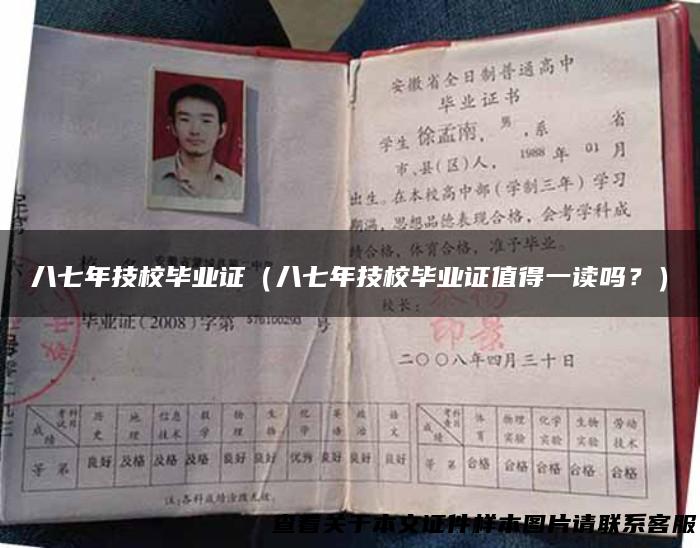 安徽省全日制普通高中
毕业证书
学生徐孟南，男，系 省
市、县(区)人，1988年01月
出生。在本校高中部(学制三年)学习
期满，思想品德表现合格，会考学科成
绩合格，体育合格，准予毕业。
八七年技校毕业证（八七年技校毕业证值得一读吗？）
校长：
毕业证(2008)字第576100293号
印景
二〇〇八年四月三十日
考试科目 历史 地理 信息技术 数学 物理 生物 化学 英语 政治 语文
成绩等第 良好 及格 及格 及格 良好 良好 优秀 良好 良好 良好
考查科目 体育 物理实验 化学实验 生物实验 劳动技术
成绩等第 合格 合格 合格 合格 合格
注:各科成绩涂改无效.
查看关于本文证件样本图片请联系客服